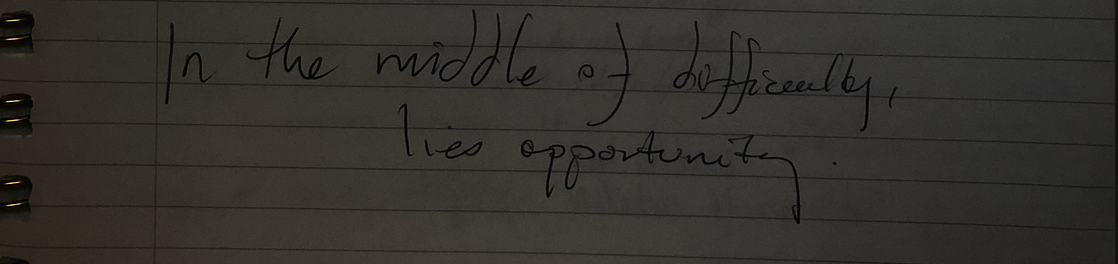 In the middle of difficulty,
lies opportunity.